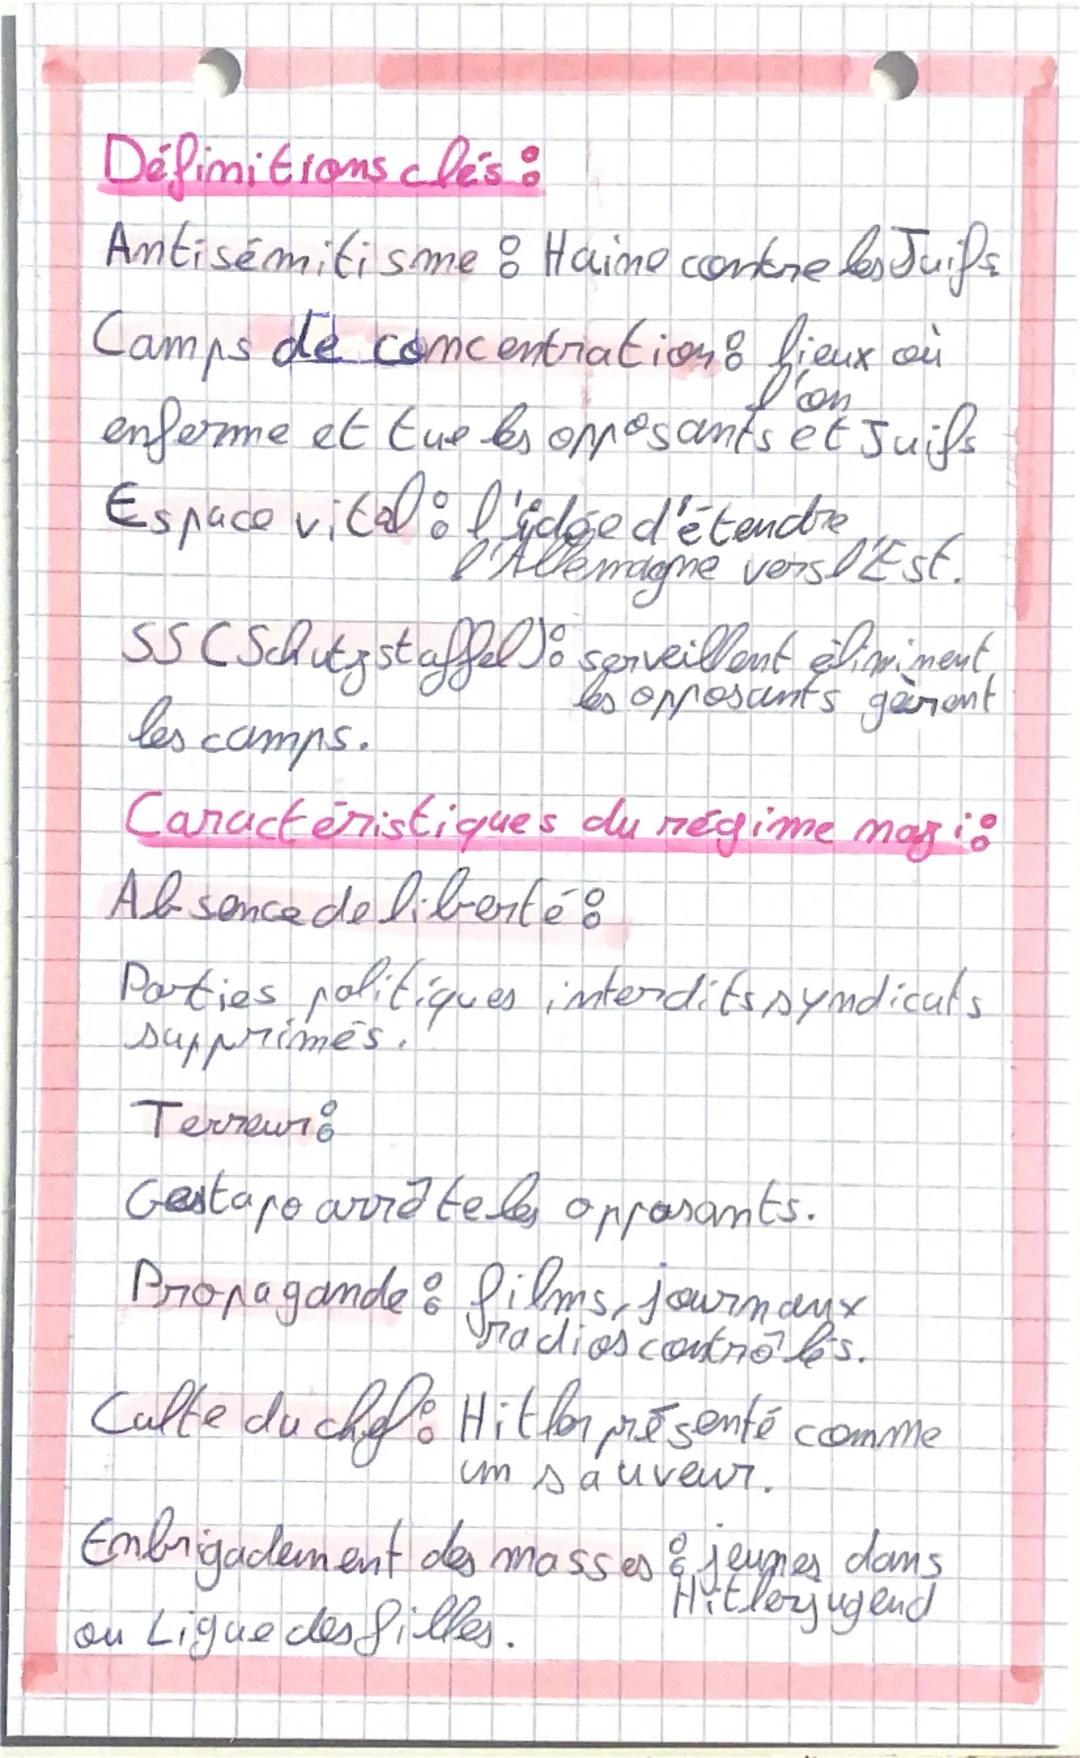 Définitions clés :
Antisémitisme : Haine contre les Juifs
Camps de concentration : lieux où
l'on
enferme et tue les opposants et Juifs
Espace vital : l'idée d'étendre
l'Allemagne vers l'Est.
SS (Schutzstaffel) : serveillent éliminent
les opposants gèrent
les camps.
Caractéristiques du régime nazi :
Absence de liberté :
Parties politiques interdits syndicats
supprimés.
Terreur :
Gestapo arrête les opposants.
Propagande : films, journaux
radios contrôlés.
Culte du chef : Hitler présenté comme
un sauveur.
Embrigadement des masses : jeunes dans
Hitlerjugend
ou Ligue des filles.